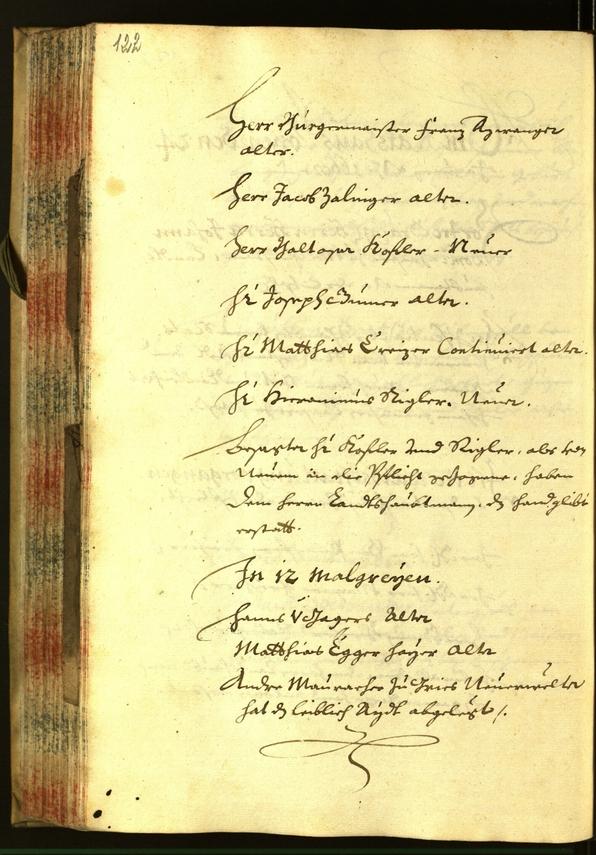 122
Herr Bürgermaister Franz Azwanger
alter.
Herr Jacob Zalinger alter.
Herr Baltasar Kofler - Neuer
Hr Joseph alter.
Hr Matthias Creizer Continuiert alter.
Hr Hieronimus Rigler. Neuer.
Besagter Hr Kofler und Rigler, als den
Neuen in die Pflicht gezogene, haben
dem herrn Landtshaubtmann, dz handglibt
erstatt.
In 12 Malgreyen.
Hanns Alter
Matthias Egger Alter
Andre Mauracher zu Gries Neuerwelter
hat dz leiblich Aydt abgelegt /.